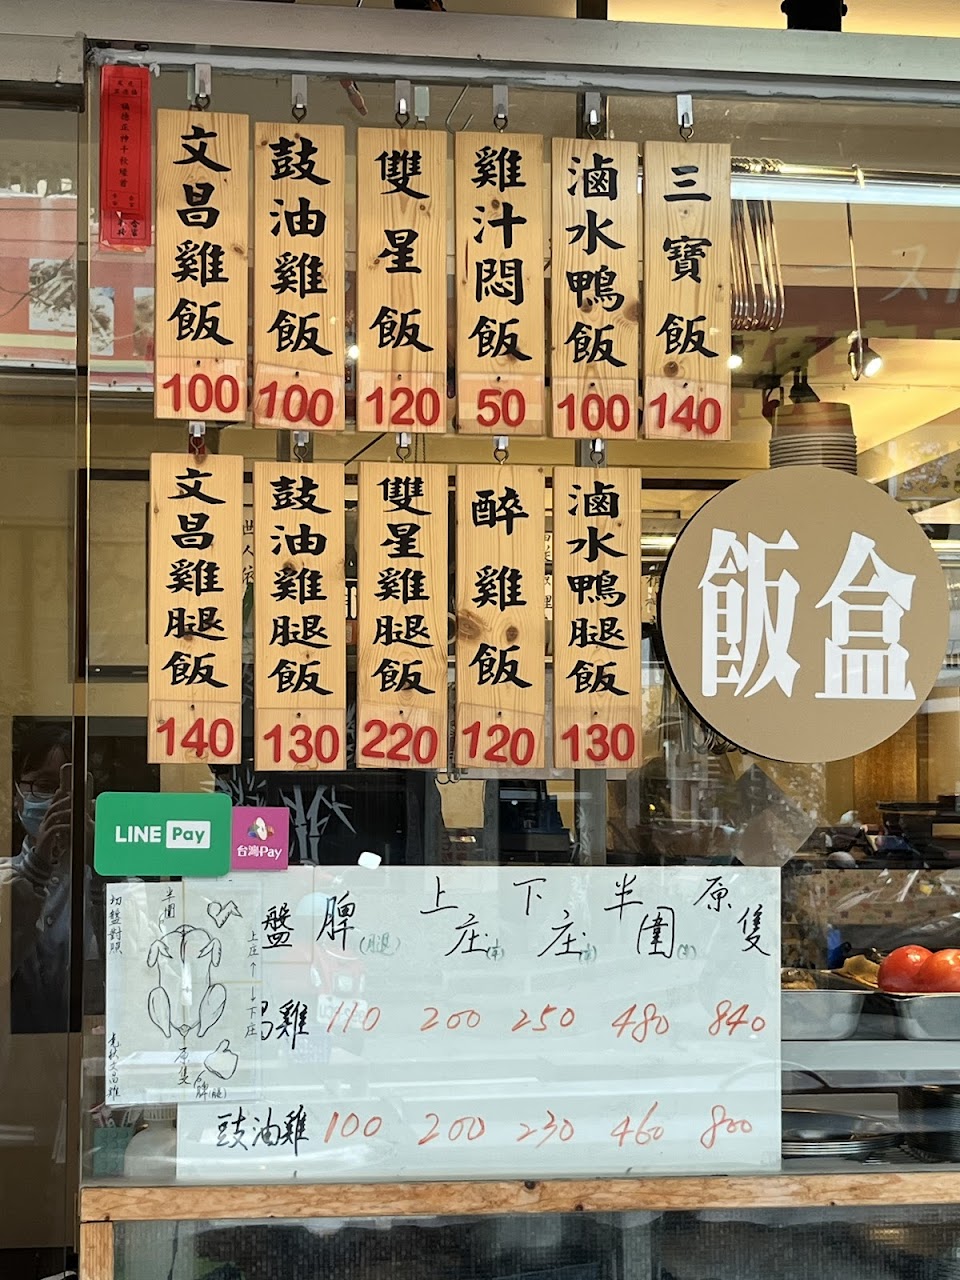 福德正神千秋壇普
文昌雞飯
100
鼓油雞飯
100
雙星飯
120
雞汁悶飯
50
滷水鴨飯
100
三寶飯
140
文昌雞腿飯
140
鼓油雞腿飯
130
雙星雞腿飯
220
醉雞飯
120
滷水鴨腿飯
130
飯盒
LINE Pay
台灣Pay
切盤對照
半圍
上庄↑
↓下庄
原隻
髀(腿)
文昌雞
盤 髀(腿) 上庄 下庄 半圍 原隻
昌雞 110 200 250 480 840
豉油雞 100 200 230 460 800